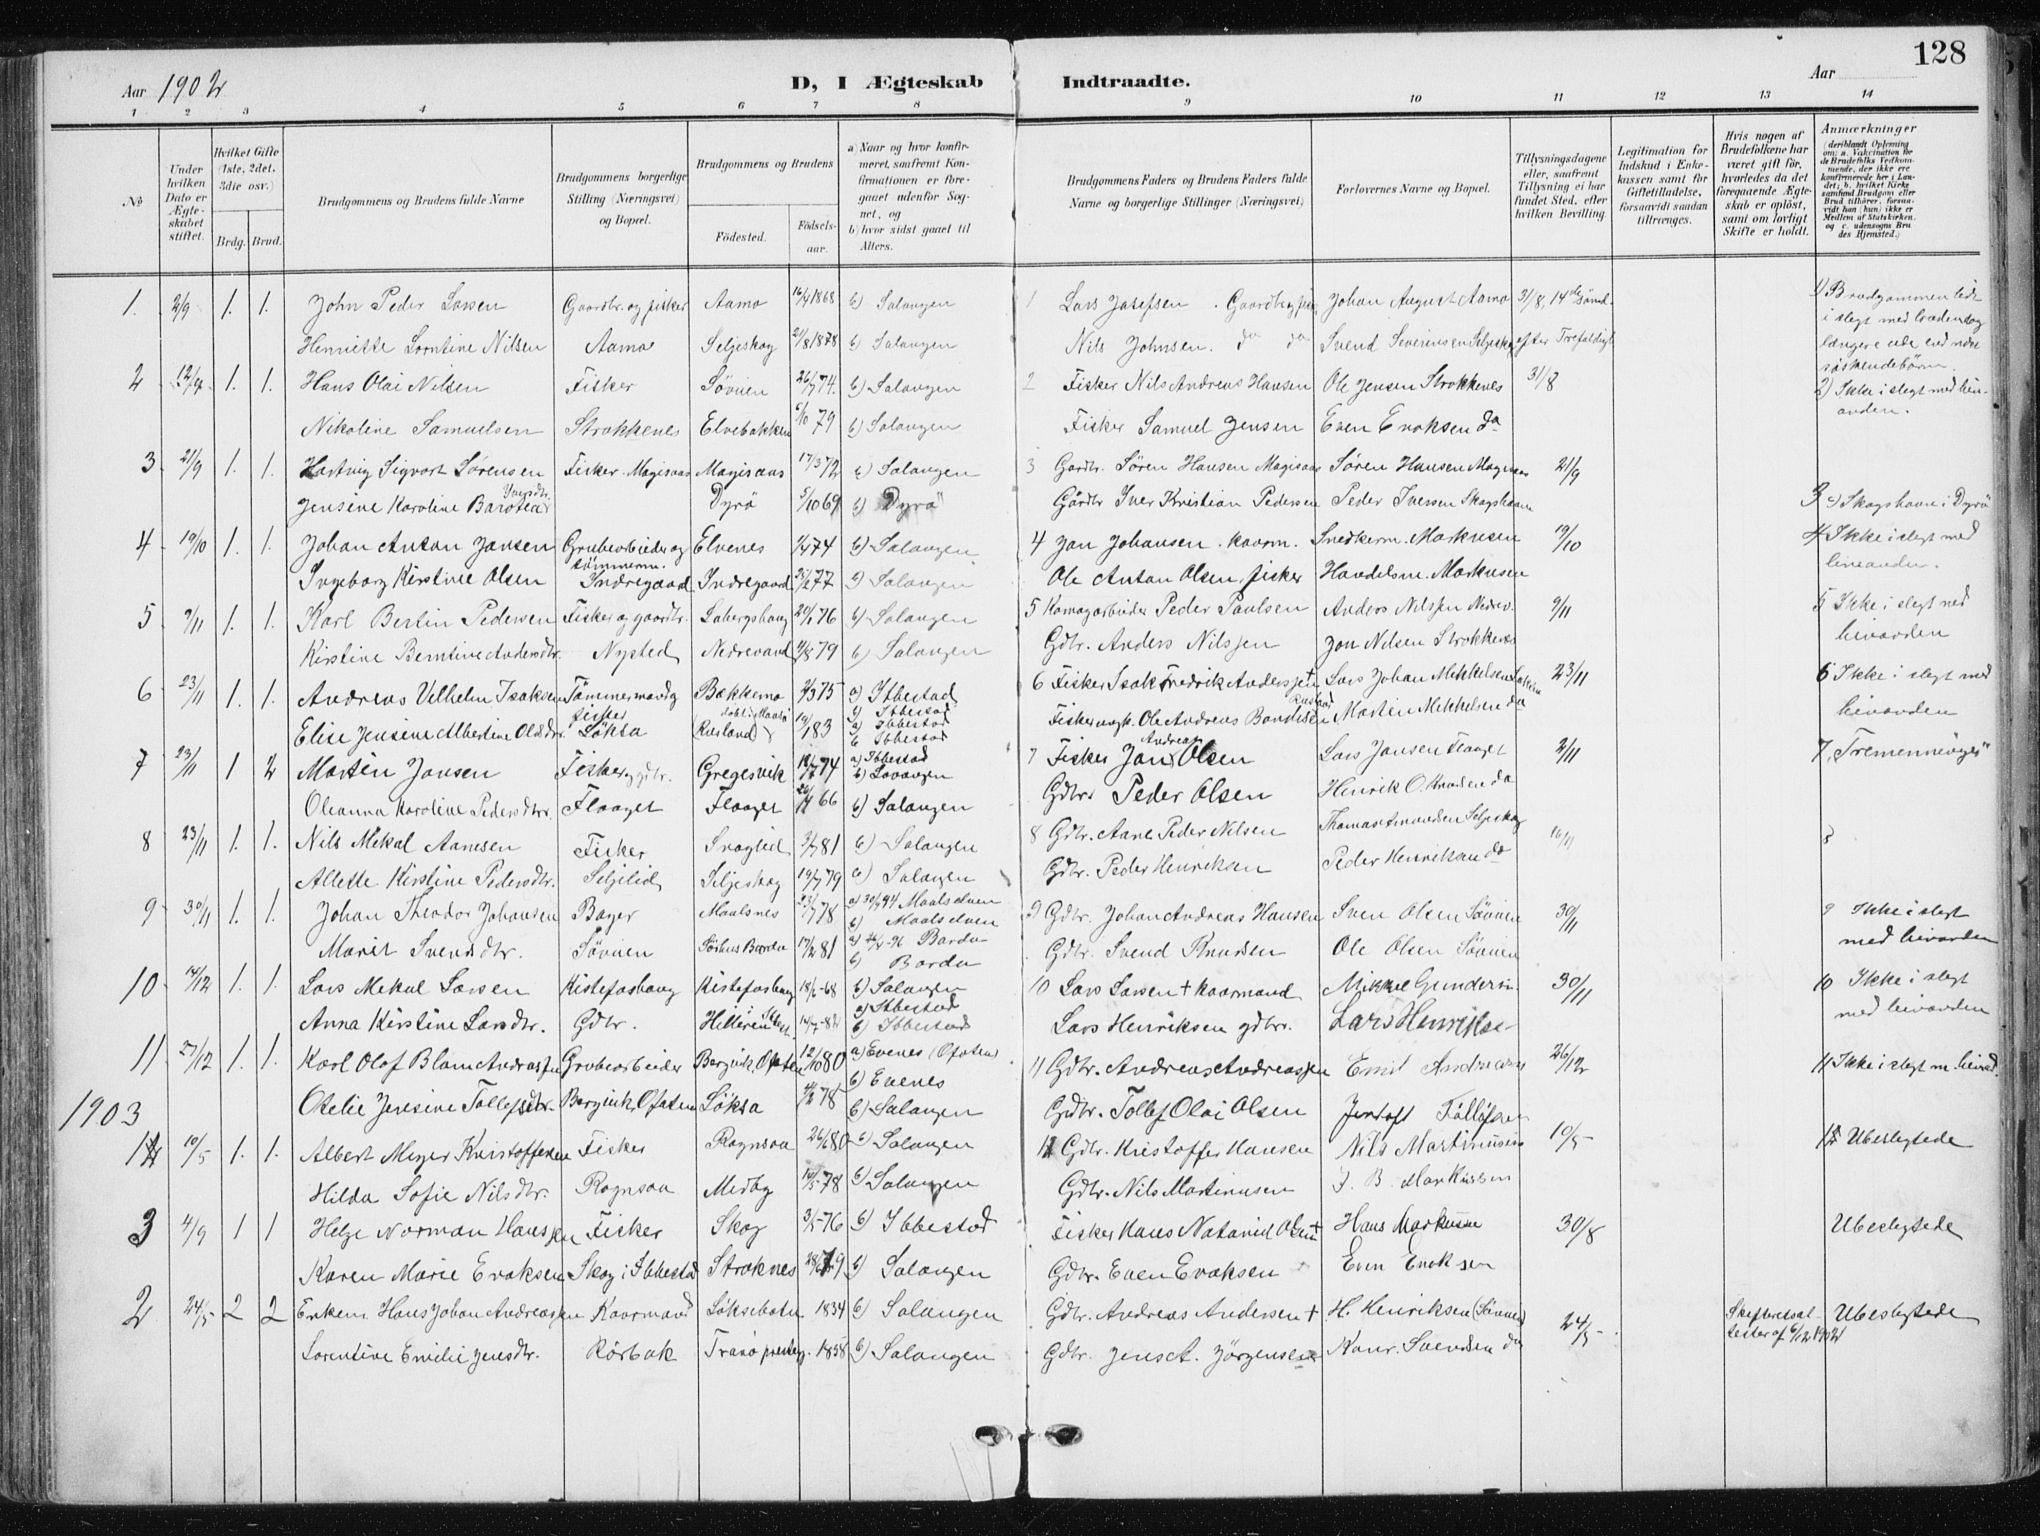 128
Aar 1902
D, I Ægteskab Indtraadte.
Aar
1 2 3 4 5 6 7 8 9 10 11 12 13 14
No
Under hvilken Dato er Ægteskabet stiftet.
Hvilket Gifte (1ste, 2det, 3die osv.)
Brdg. Brud.
Brudgommens og Brudens fulde Navne
Brudgommens borgerlige Stilling (Næringsvei) og Bopæl.
Brudgommens og Brudens
Fødested. Fødselsaar.
a) Naar og hvor konfirmeret, saafremt Konfirmationen er foregaaet udenfor Sognet, og
b) hvor sidst gaaet til Alters.
Brudgommens Faders og Brudens Faders fulde Navne og borgerlige Stillinger (Næringsvei)
Forlovernes Navne og Bopæl.
Tillysningsdagene eller, saafremt Tillysning ei har fundet Sted, efter hvilken Bevilling.
Legitimation for Indskud i Enkekassen samt for Giftetilladelse, forsaavidt saadan tiltrænges.
Hvis nogen af Brudefolkene har været gift før, hvorledes da det foregaaende Ægteskab er opløst, samt om lovligt Skifte er holdt.
Anmærkninger (deriblandt Oplysning om: a. Vakcination for de Brudefolks Vedkommende, der ikke ere konfirmerede her i Landet; b. hvilket Kirkesamfund Brudgom eller Brud tilhører, forsaavidt han (hun) ikke er Medlem af Statskirken, og c. udensogns Brudes Hjemsted.)
1. 2/9 1. 1. John Peder Larsen Gaardbr. og fisker Aamo 16/4 1868 b) Salangen 1 Lars Josefsen. Gaardbr. og fisker Johan August Aamo 31/8, 14de Sønd. 1) Brudgommen ledt
i slegt med bruden dog
Henriette Lorntine Nilsen Aamo Seljeskog 21/8 1878 b) Salangen Nils Johnsen. do do Svend Severinsen Seljeskog efter Trefoldigh. længere ude end næst
søskendebørn.
2 12/9 1. 1. Hans Olai Nilsen Fisker Søvien 26/7 74. b) Salangen 2 Fisker Nils Andreas Hansen Ole Jensen Strokkenes 31/8 2) Ikke i slegt med hin-
anden.
Nikoline Samuelsen Strokkenes Elvebakken 5/10 79 b) Salangen Fisker Samuel Jensen Even Enoksen do
3 21/9 1. 1. Hartvig Sigvart Sørensen Fisker. Magisaas Magisaas 17/3 72 b) Salangen 3 Gardbr. Søren Hansen Magisaas Søren Hansen Magisaas 21/9
Jensine Karoline Iversdtr. Dyrø 5/10 69 b) Dyrø Gårdbr Iver Kristian Pedersen Peder Iversen Skogshavn 3 c) Skogshavn i Dyrø
4 19/10 1. 1. Johan Anton Jansen Grubearbeider og tømmerm. Elvenes 74 b) Salangen 4 Jan Johansen. kaarm. Snedkerm. Markusen 19/10 4 Ikke i slegt med
hinanden.
Ingeborg Kirstine Olsen Indregaard Indregaard 77 b) Salangen Ole Anton Olsen fisker Handelsm. Markusen
5 9/11 1. 1. Karl Bertin Pedersen Fisker og gaardbr. Labergshaug 20/1 76 b) Salangen 5 Komagarbeider Peder Paulsen Anders Nilsen Nedrev. 9/11 5 Ikke i slegt med
hinanden
Kirstine Berntine Andersdtr. Nysted Nedrevand 9/8 79 b) Salangen Gdbr. Anders Nilsen Jon Nilsen Strokkenes
6 23/11 1. 1. Andreas Vilhelm Isaksen Tømmermand og fisker Bakkemo 75 a) Ibbestad b) Ibbestad 6 Fisker Isak Fredrik Anderssen + Lars Johan Mikkelsen 23/11 6 Ikke i slegt med
hinanden
Elise Jensine Albertine Olsdtr. Løksa 19/1 83 a) Ibbestad b) Ibbestad Ole Andreas Martin Mikkelsen do
7 23/11 1 2 Martin Jansen Fisker og gdbr. Gregesvik 74 a) Ibbestad b) Lavangen 7 Fisker Jan Andreas Olsen Lars Jansen Flaaget 2/11 7 „Tremenninger“
Oleanna Karoline Pedersdtr. Flaaget Flaaget 66 b) Salangen Gdbr. Peder Olsen Henrik O. Knudsen do
8 23/11 1. 1. Nils Mekal Aanesen Fisker 81 b) Salangen 8 Gdbr. Aane Peder Nilsen Thomas Amundsen Seljeskog 16/11 8
Alette Kirstine Pedersdtr. Seljelid Seljeskog 19/7 79 b) Salangen Gdbr. Peder Henriksen Peder Henriksen do
9 30/11 1. 1. Johan Theodor Johansen Bager Maalsnes 23/7 78 a) 30/9 94 Maalselven b) Maalselven 9 Gdbr. Johan Andreas Hansen Sven Olsen Søvien 30/11 9 Ikke i slegt
med hinanden
Marit Svensdtr. Søvien Bardu 17/2 81 a) 96 Bardu b) Bardu Gdbr. Svend Knudsen Ole Olsen Søvien
10 14/12 1. 1. Lars Mekal Larsen Kistefoshaug Kistefoshaug 18/6-68 b) Salangen 10 Lars Larsen + kaarmand Mikkel Gundersen 30/11 10 Ikke i slegt
med hinanden
Anna Kirstine Larsdtr. Gdbr. 14/7-82 a) Ibbestad b) Ibbestad Lars Henriksen gdbr. Lars Henriksen
11 27/12 1. 1. Karl Olof Blom Andreassen Grubearbeider Bergvik, Ofoten 12/10 80 a) Evenes (Ofoten) b) Evenes 11 Gdbr. Andreas Andreassen Emil Andreassen 26/12 11 Ikke i slegt m. hinand.
Otelie Jensine Tollefsdtr. Bergvik, Ofoten Løksa 78 b) Salangen Gdbr. Tollef Olai Olsen Jentoft Tollefsen
1903
1 10/5 1. 1. Albert Meyer Kristoffersen Fisker Rognsaa 26/1 80 b) Salangen 1 Gdbr. Kristoffer Hansen Nils Martinussen 10/5 1 Ubeslegtede
Hilda Sofie Nilsdtr. Rognsaa Medby 14/5-78 b) Salangen Gdbr. Nils Martinusen J. B. Markussen
3 4/9 1 1 Helge Norman Hanssen Fisker Skog 3/5-76 b) Ibbestad Fisker Hans Natanael Olsen + Hans Markussen 30/8 Ubeslegtede
Karen Marie Enoksen Skog i Ibbestad Stroknes 79 b) Salangen Gdbr. Even Enoksen Even Enoksen
2 24/5 2 2 Enkem. Hans Johan Andreassen Kaarmand Løksebotn 1834 b) Salangen Gdbr. Andreas Andersen + H. Henriksen (Søvien) 24/5 Skifteretsat-
tester af 6/12 1902 Ubeslegtede
Lorentine Emilie Jensdtr. Rørbak Tranø prestegj. 1858 b) Salangen Gdbr. Jens A. Jørgensen Konr. Svendsen do